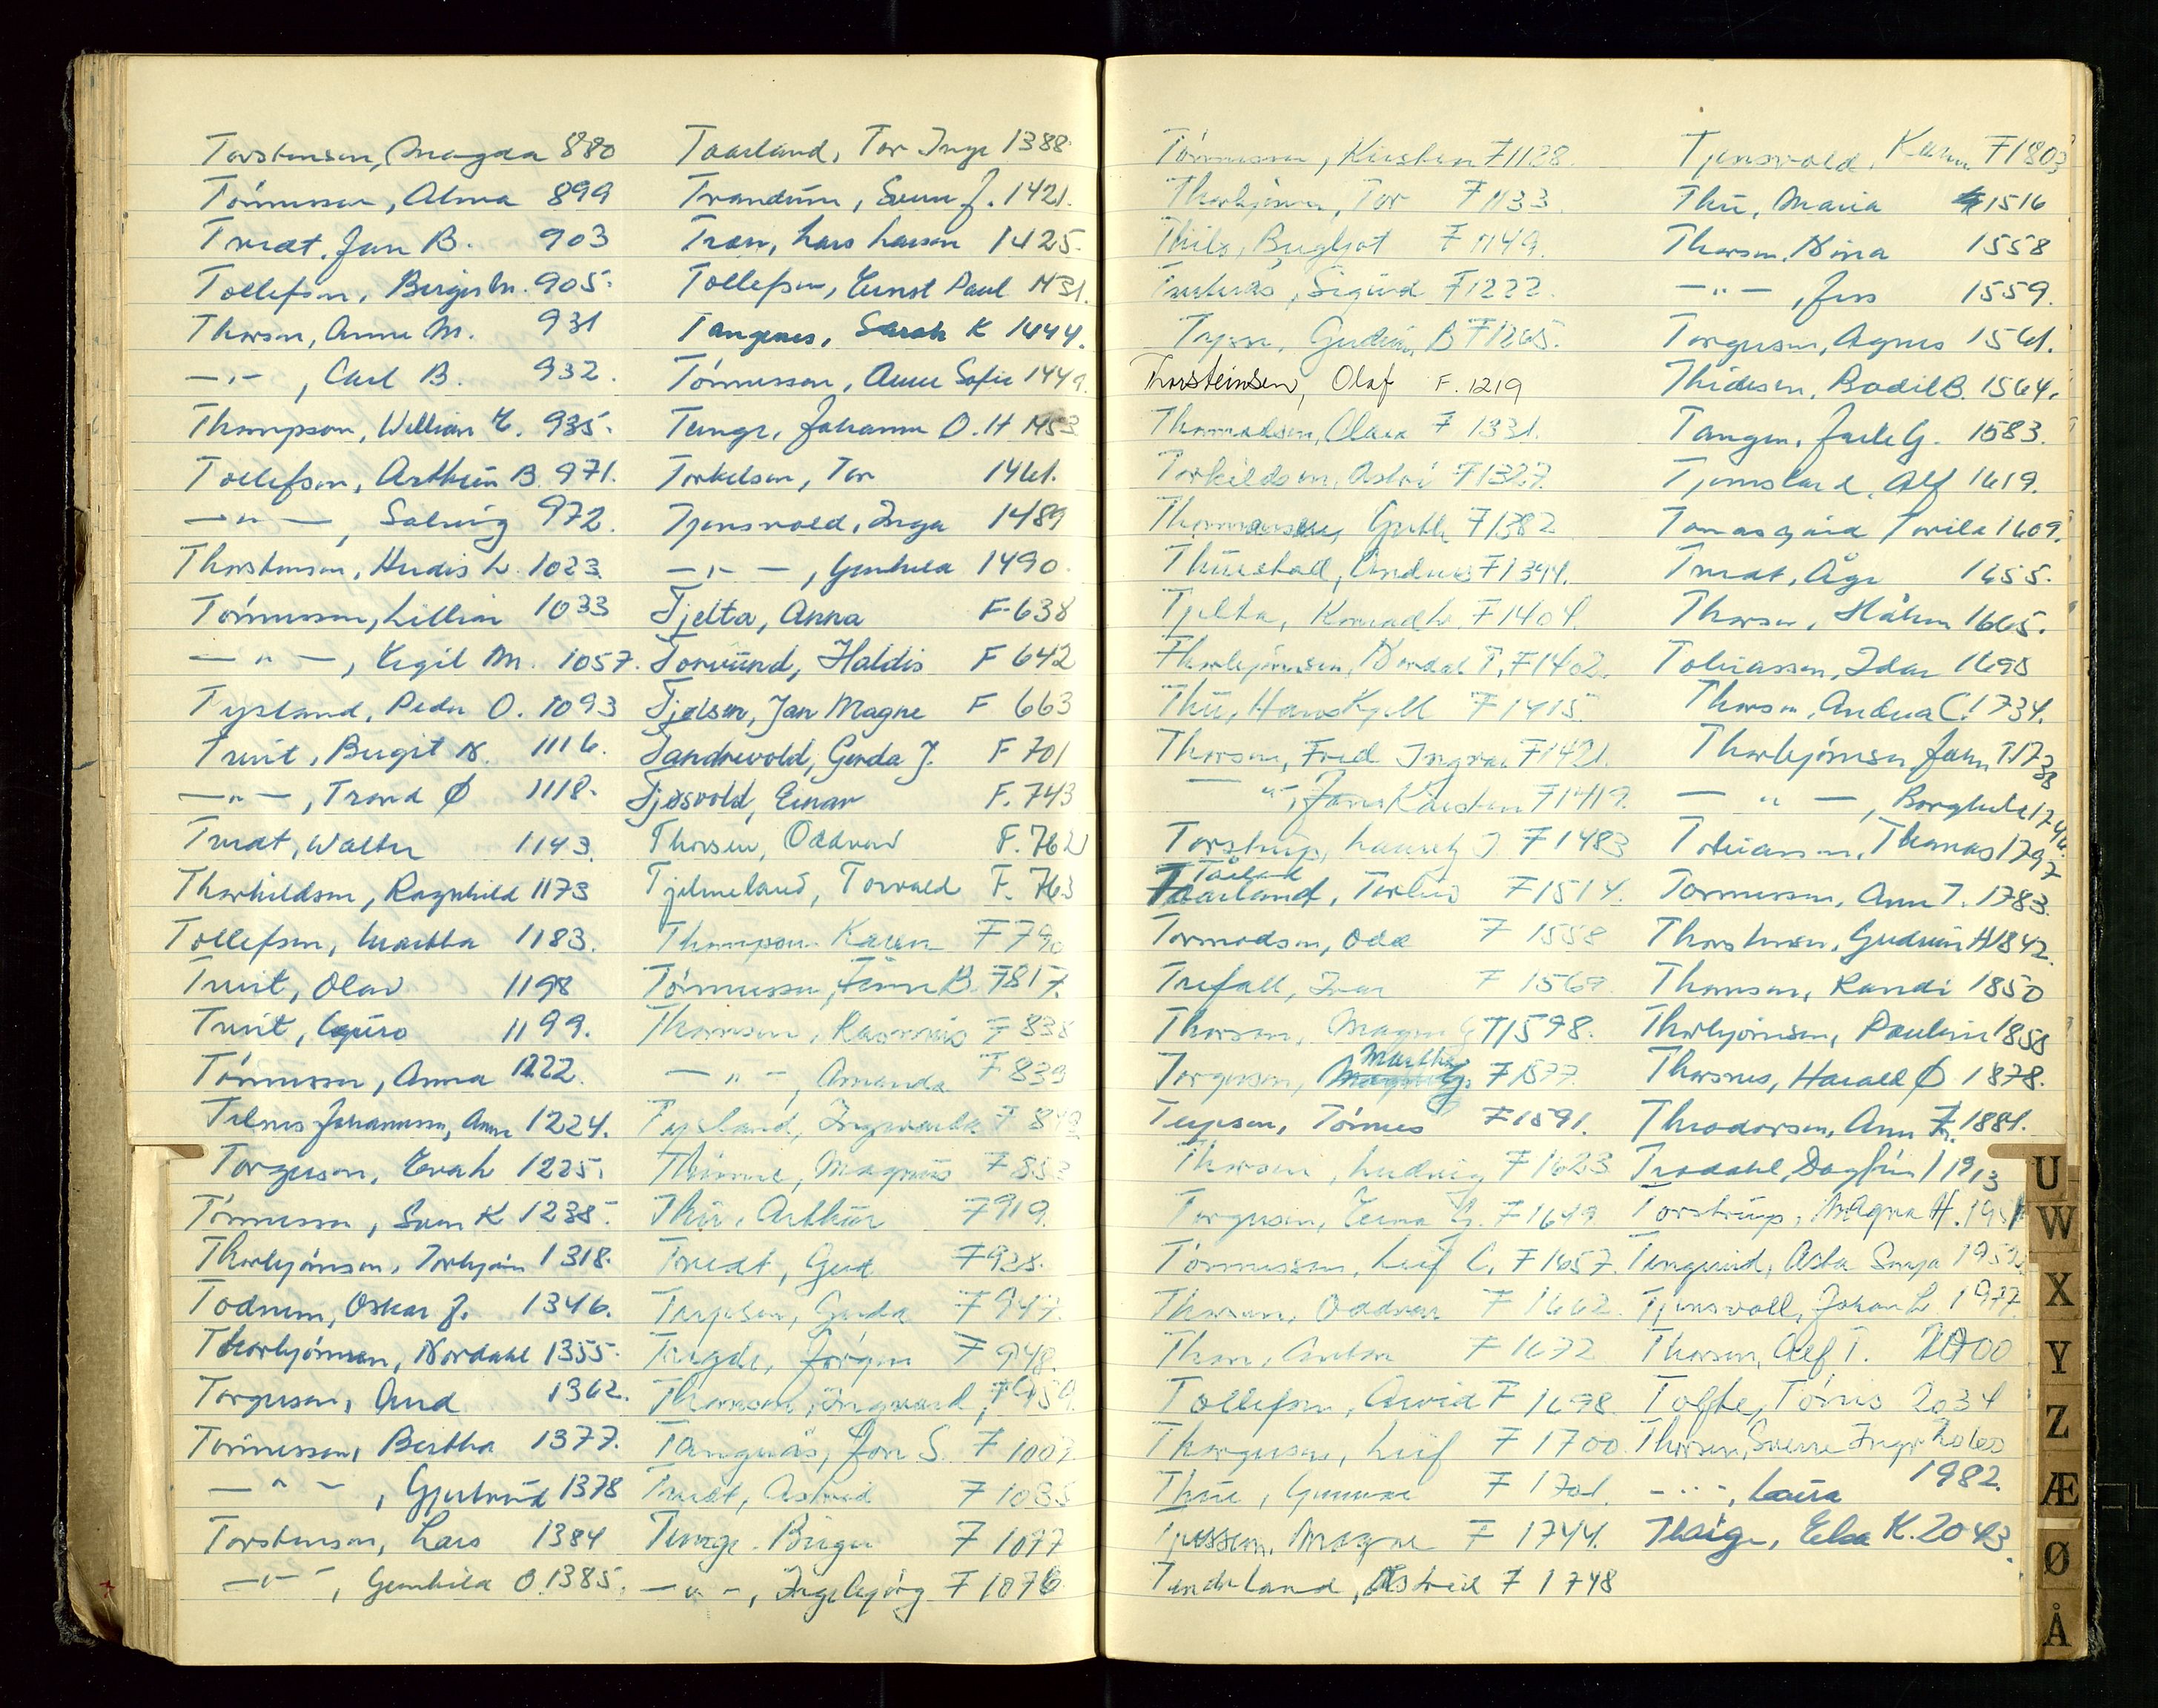 Torstensen, Magda 880
Tönnessen, Alma 899
Tvedt, Jan B. 903
Tollefsen, Birger M. 905.
Thorsen, Anne M. 931
—"—, Carl B. 932.
Thompson, William E. 935.
Tollefsen, Arthur B. 971.
—"—, Solveig 972.
Thorstensen, Herdis L. 1023.
Tönnessen, Lillian 1033
—"—, Kegil M. 1057.
Tysland, Peder O. 1093
Tveit, Birgit N. 1116.
—"—, Trond Ø 1118.
Tvedt, Walter 1143.
Thorkildsen, Ragnhild 1173
Tollefsen, Martha 1183.
Tveit, Olav 1198
Tveit, Guro 1199.
Tönnessen, Anna 1222.
Johannesen, Anne 1224.
Torgersen, Eva L 1225.
Tönnessen, Sven K 1235.
Thorbjörnsen, Torbjörn 1318.
Todnem, Oskar J. 1346.
Thorbjörnsen, Nordahl 1355.
Torgersen, Aud 1362.
Tönnessen, Bertha 1377.
—"—, Gjertrud 1378
Torstensen, Lars 1384
—"—, Gunhild O. 1385.
Taarland, Tor Inge 1388.
Trandum, Svein J. 1421.
Tran, Lars Larsen 1425.
Tollefsen, Ernst Paul 1431.
Tangenes, Sarah K 1444.
Tönnessen, Anne Sofie 1449.
Tunge, Johanne O. H 1453
Torkelsen, Tor 1461.
Tjensvold, Inga 1489
—"—, Gunhild 1490.
Tjelta, Anna F-638
Torvund, Haldis F 642
Tjelsen, Jan Magne F 663
Tandrevold, Gerda J. F 701
Tjøsvold, Einar F. 743
Thorsen, Oddvar F. 762
Tjelmeland, Torvald F. 763
Thompson Karen F 790
Tönnessen, Finn B. F 817.
Thomsen, Rasmus F 838
—"—, Amanda F 839
Tysland, Ingvarda F 849
Thime, Magnus F 853
Thu, Arthur F 919.
Tvedt, Gerd F 928.
Terjesen, Gerda F 947.
Tengde, Jörgen F 948.
Thomsen, Ingvard, F 950.
Tangerås, Jon S. F 1007.
Tvedt, Astrid F 1035
Tunge Birger F 1077
—"—, Ingebjørg F 1076.
Tönnessen, Kirsten F 1128.
Thorbjörnsen, Tor F 1133
Thilo, Bergljot F 1149.
Sigurd F 1222.
Gudrun B F 1265.
Thorsteinsen, Olaf F. 1219
Thormodsen, Olava F 1331.
Torkildsen, Astri F 1327.
Thomassen, Grethe F 1382
Thuestad, Andreas F 1394.
Tjelta, Konrad L. F 1404.
Thorbjörnsen, Nordal T. F 1402.
Thu, Hans Kjell F 1415.
Thorsen, Fred Ingvar F 1421.
—"—, Jane Karsten F 1419.
Torstrup, Lauritz J F 1483
Tårland
Taarland, Torleiv F 1514.
Tormodsen, Odd F 1558
Trefall, Ivar F 1569
Thorsen, Magna G F 1598.
Martha
Torgersen, F 1577.
Terjesen, Tönnes F 1591.
Thorsen, Ludvig F 1623
Torgersen, Erna G. F 1649
Tönnessen, Leif C. F 1657.
Thorsen, Oddvar F 1662.
Thon, Anton F 1672
Tollefsen, Arvid F 1698.
Thorgersen, Leif F 1700.
Thue, Gunnar F 1701.
Magne F 1744.
Tendeland, Astrid F 1748
Tjensvold, Karen F 1803
Thu, Maria 1516
Thorsen, Nina 1558
—"—, Jens 1559.
Torgersen, Agnes 1561.
Thidesen, Bodil B. 1564.
Tangen, Jarle G. 1583.
Tjemsland, Alf 1619.
Tomasgård Torild 1609.
Tvedt, Åge 1655.
Thorsen, Håkon 1665.
Tobiassen, Idar 1695
Thorsen, Andrea C. 1734.
Thorbjörnsen John T 1738
—"—, Borghild 1746.
Tobiassen, Thomas 1797
Tönnessen, Ann T. 1783.
Thorstensen, Gudrun H 1842.
Thomsen, Randi 1850
Thorbjörnsen, Pauline 1858
Thorsnes, Harald Ø 1878.
Theodorsen, Ann F. 1881.
Trodahl, Dagfinn I 1913
Torstrup, Magna H. 1951
Tengesd, Asta Sonja 1952.
Tjensvoll, Johan L. 1977.
Thorsen, Alf T. 2000
Tofte, Tönnis 2034
Thorsen, Sverre Ingv 2060
—"—, Laura 1982.
Thaige, Elsa K. 2043.
U
W
X
Y
Z
Æ
Ø
Å